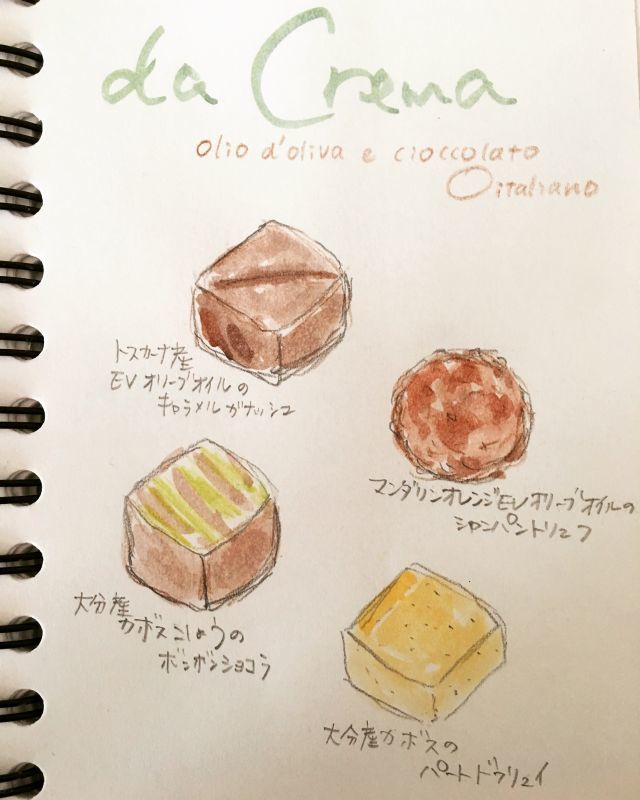 La Crema
olio d'oliva e cioccolato
Oitaliano
トスカーナ産
EVオリーブオイルの
キャラメルガナッシュ
マンダリンオレンジEVオリーブオイルの
シャンパントリュフ
大分産
カボスこしょうの
ボンボンショコラ
大分産カボスの
パートドフリュイ